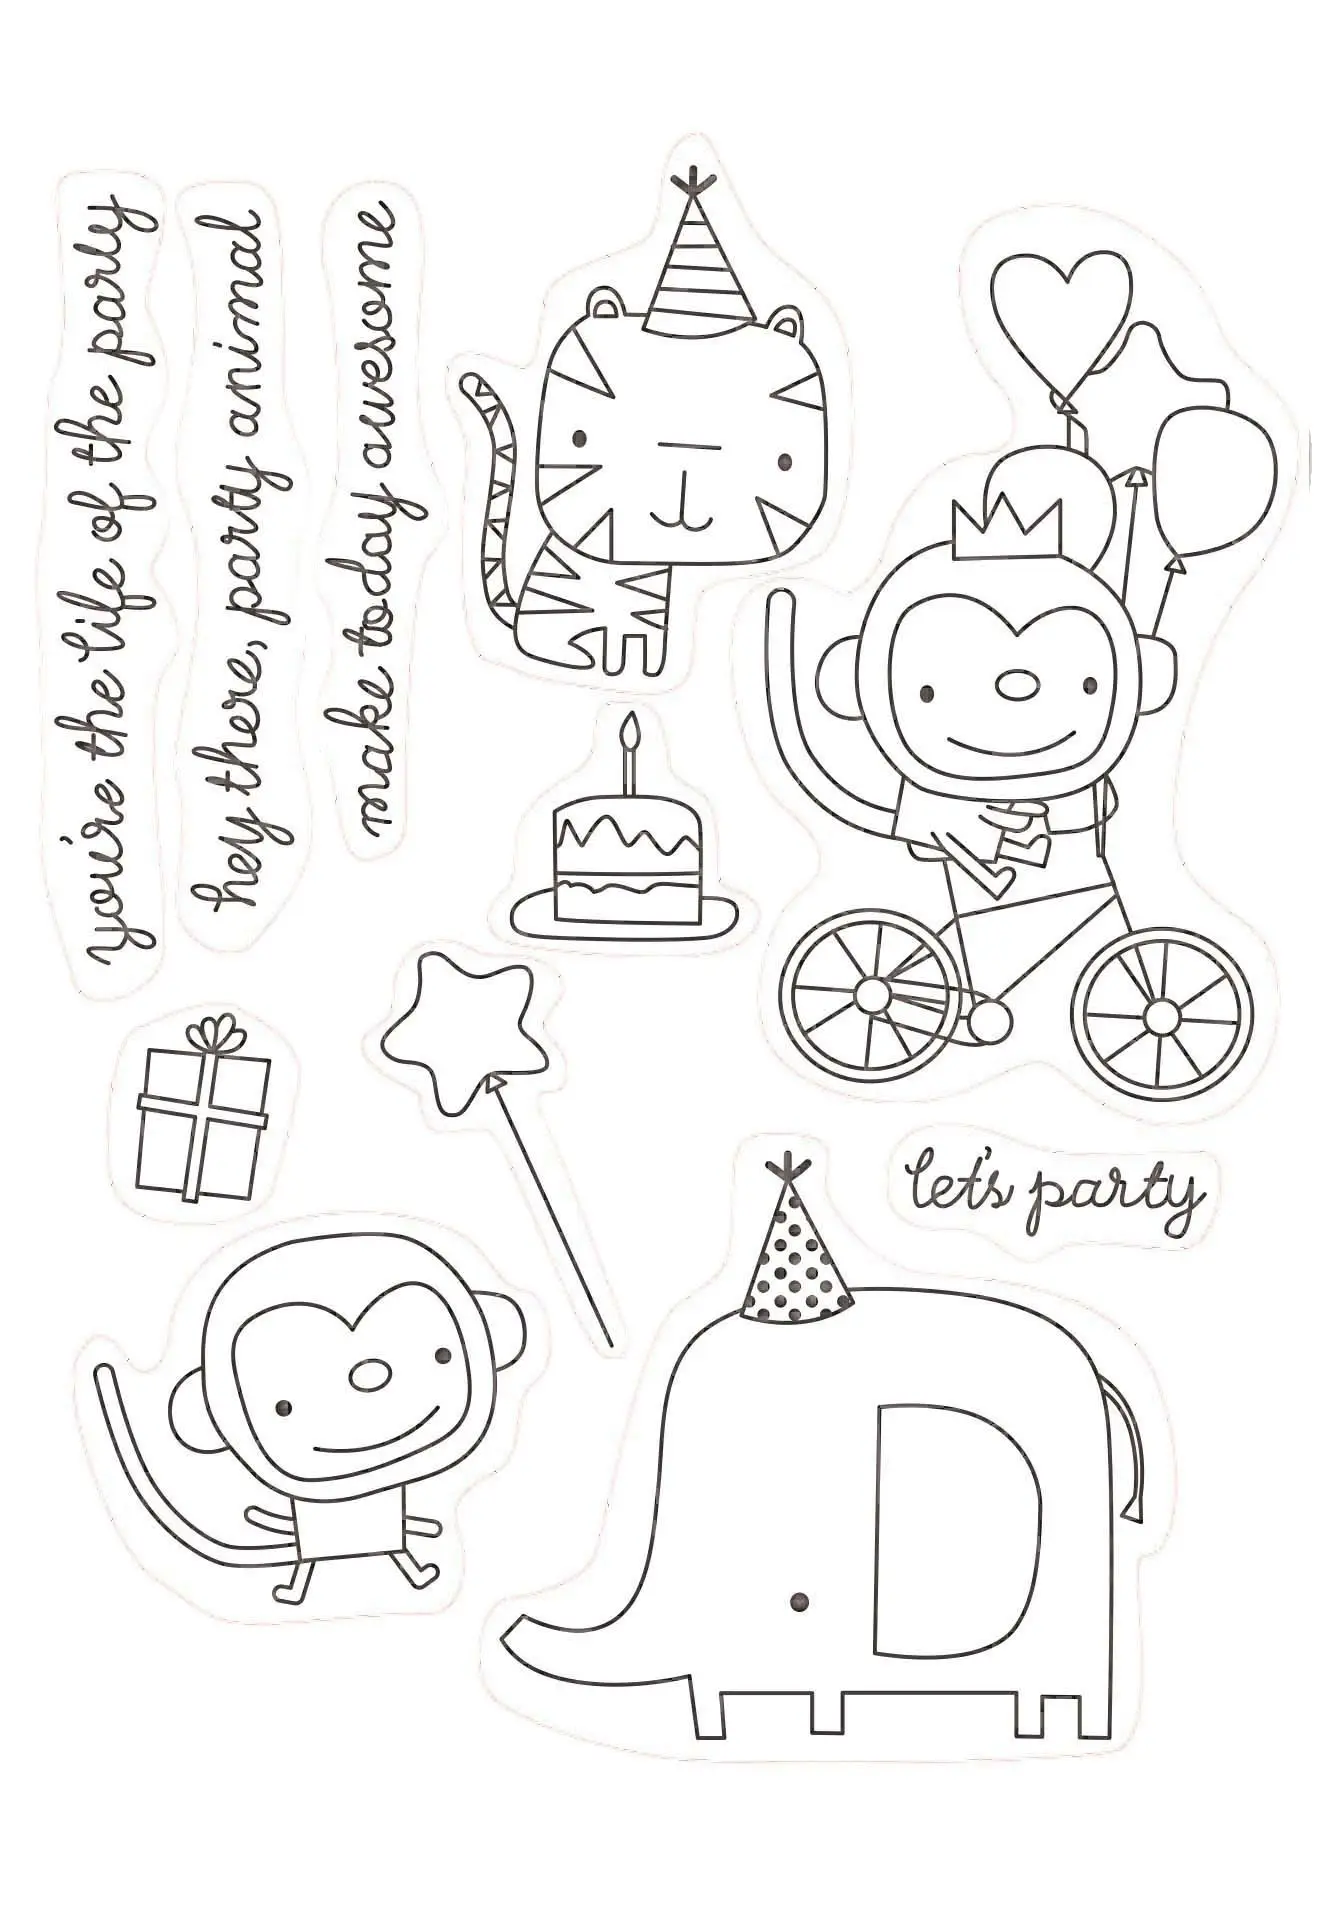 you're the life of the party
hey there, party animal
make today awesome
let's party